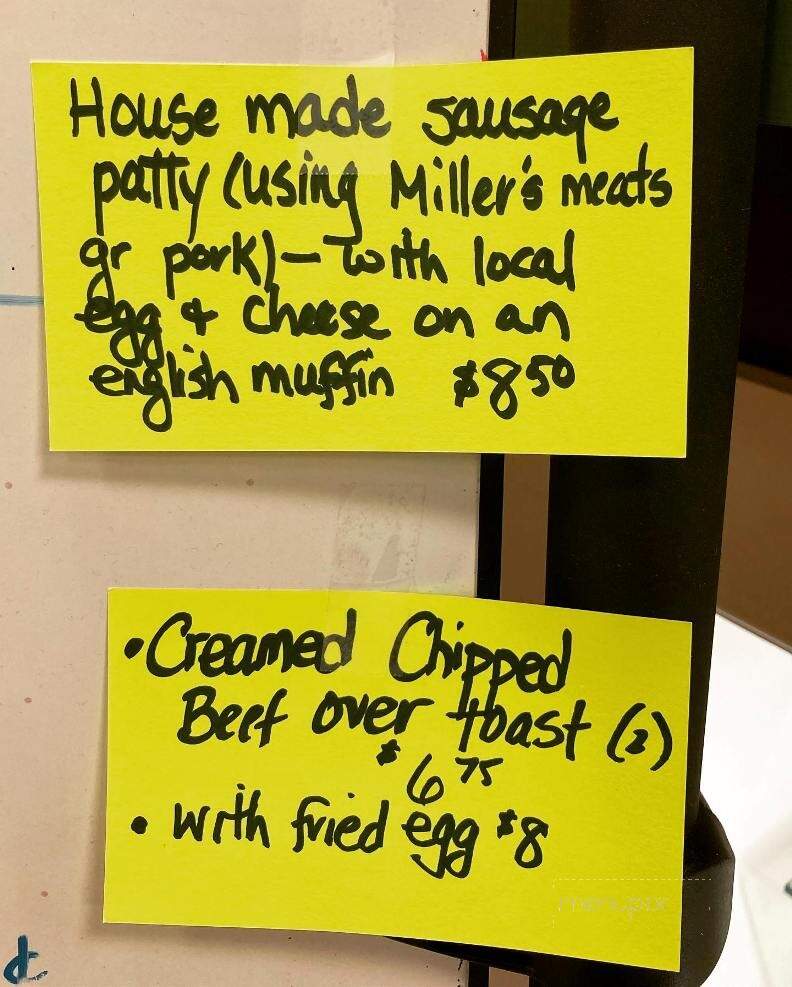 House made sausage
patty (using Miller's meats
gr pork) — with local
egg & cheese on an
english muffin $8 50
• Creamed Chipped
Beef over toast (2)
$6 75
• with fried egg $8
menupix